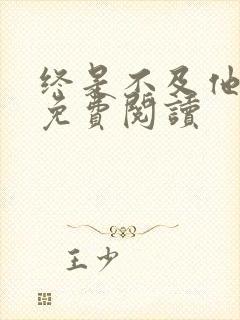 终是不及他
免費閱讀
王少